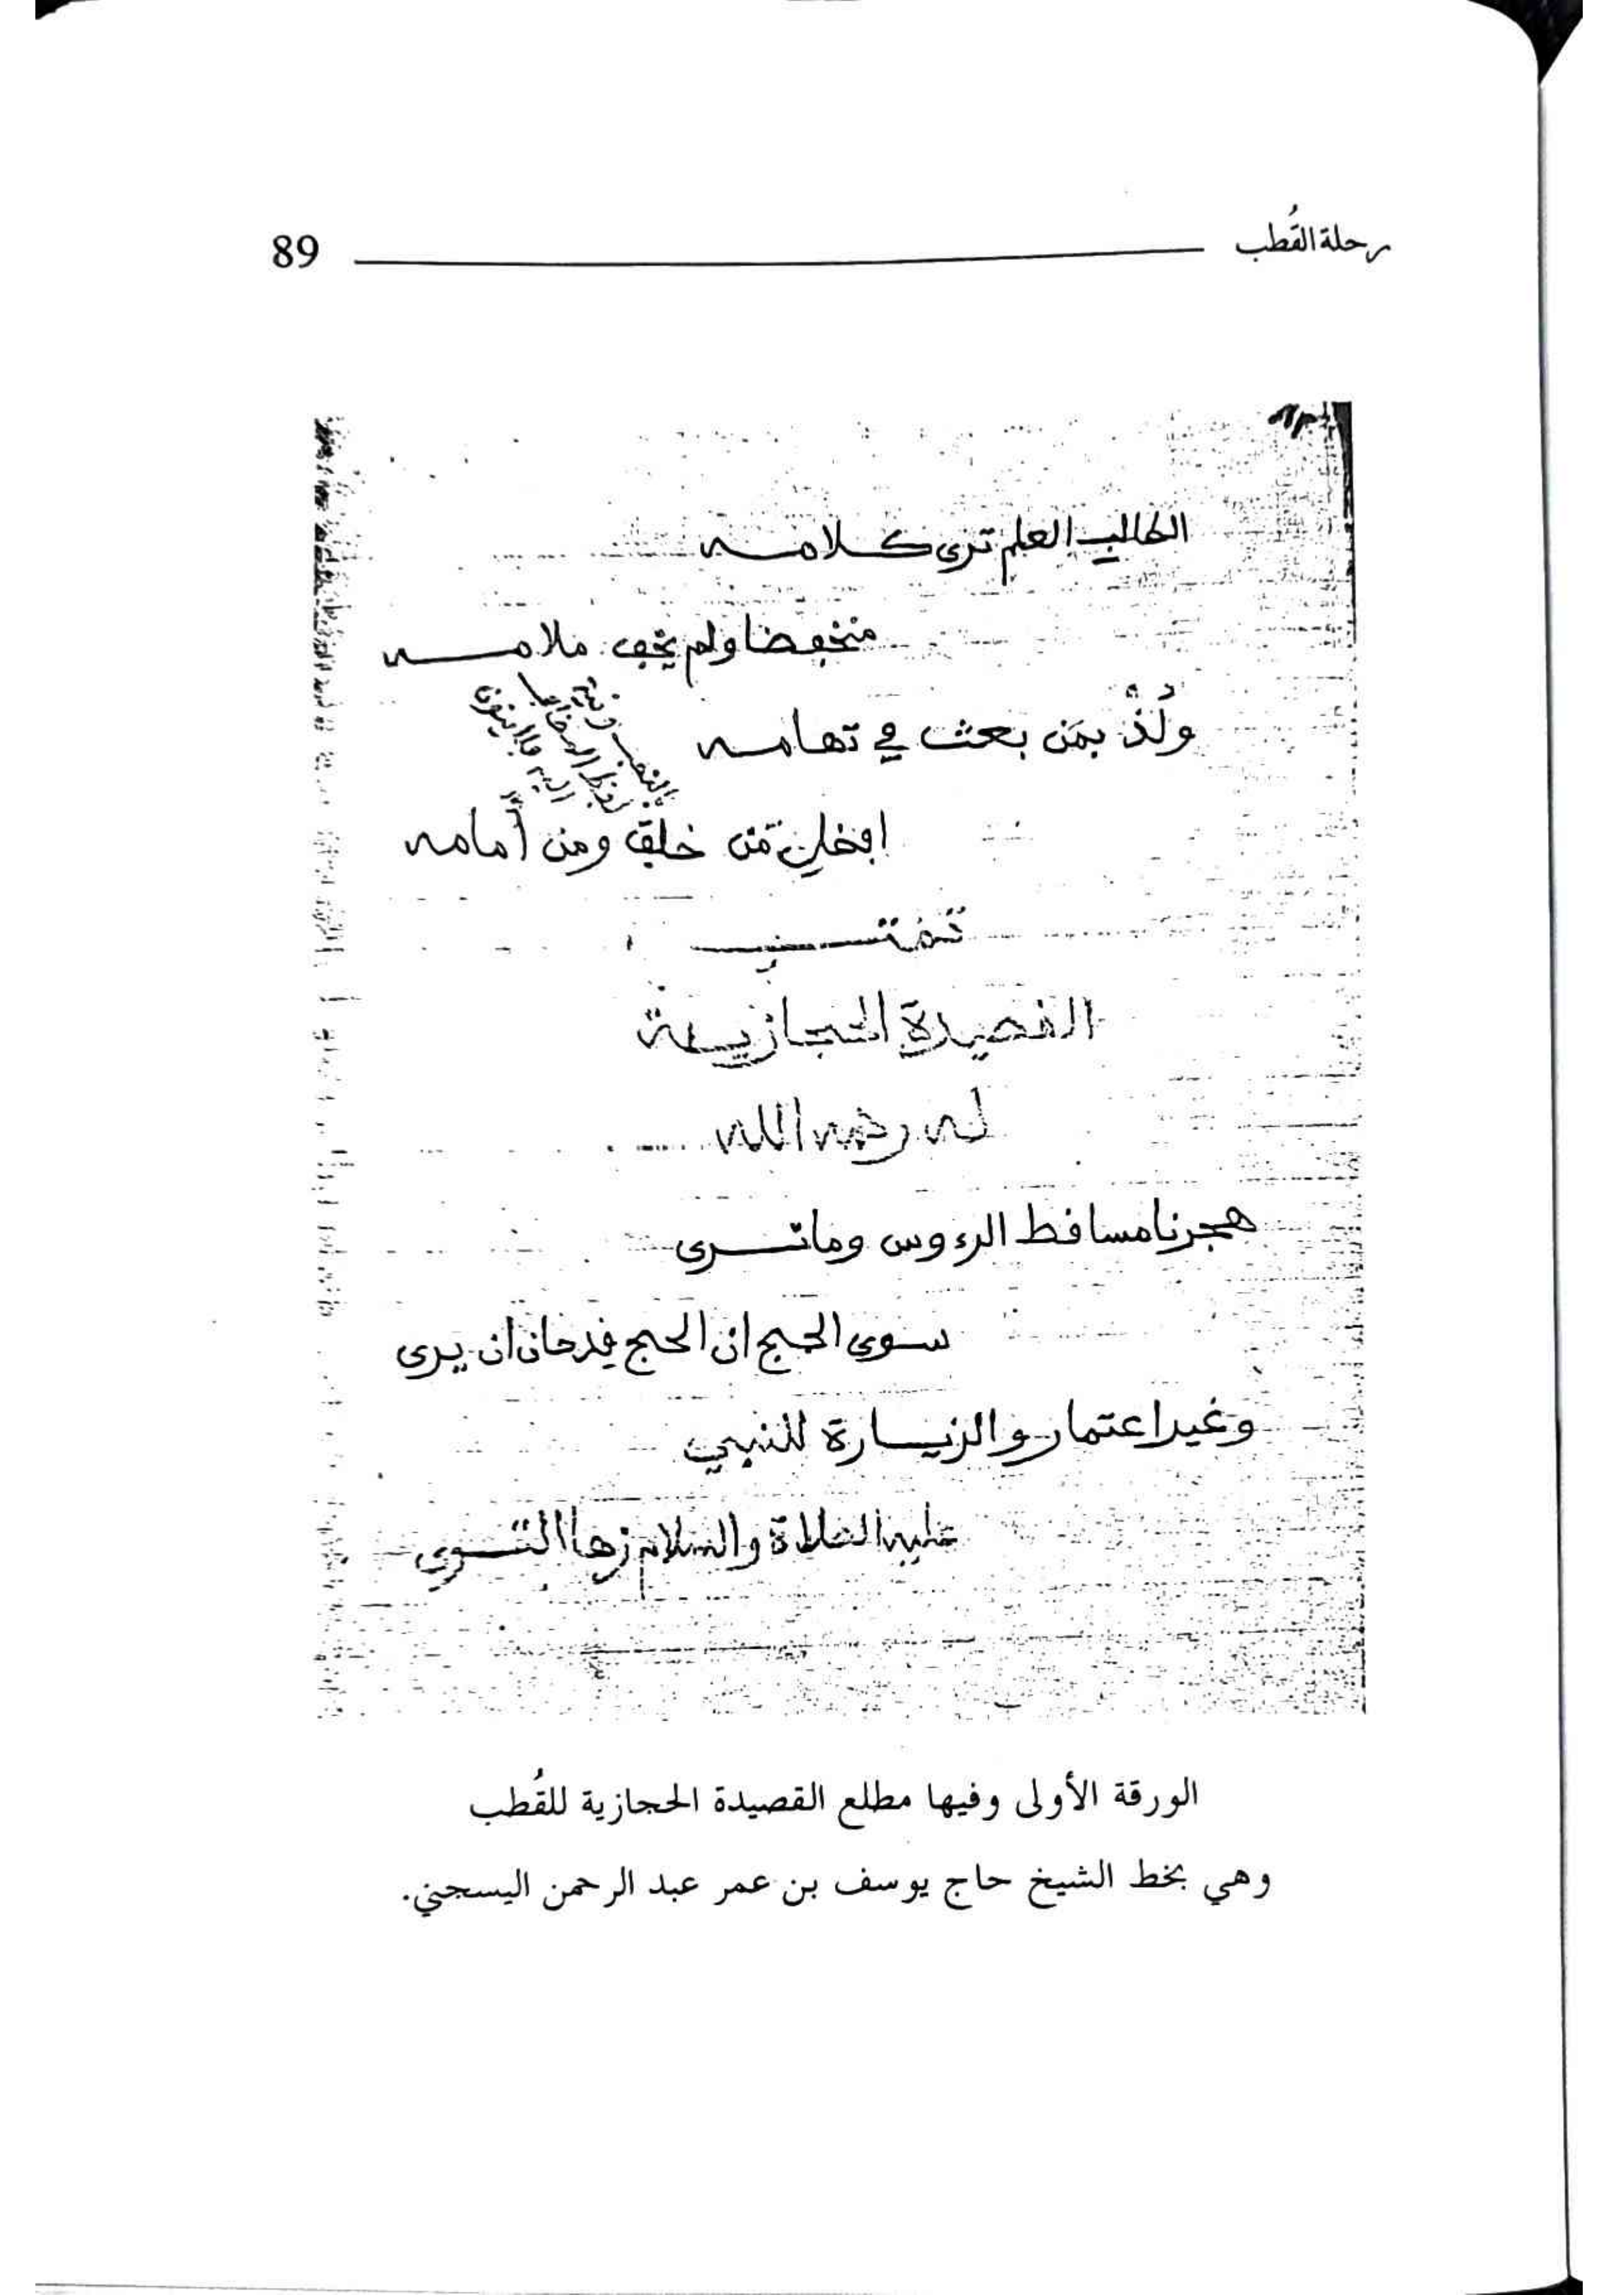 رحلة القُطب 89
الطالب العلم ترى كلامه
منخفضا ولم يخف ملامه
ولُذْ بمَن بعث في تهامه
من خلف ومن أمامه
تمت
القصيدة الحجازية
له رحمه الله
هجرنا مسافط الرءوس وما ترى
سوى الحج ان الحج قد حان ان يرى
وغير اعتمار والزيارة للنبي
عليه الصلاة والسلام زها
الورقة الأولى وفيها مطلع القصيدة الحجازية للقُطب
وهي بخط الشيخ حاج يوسف بن عمر عبد الرحمن اليسجني.